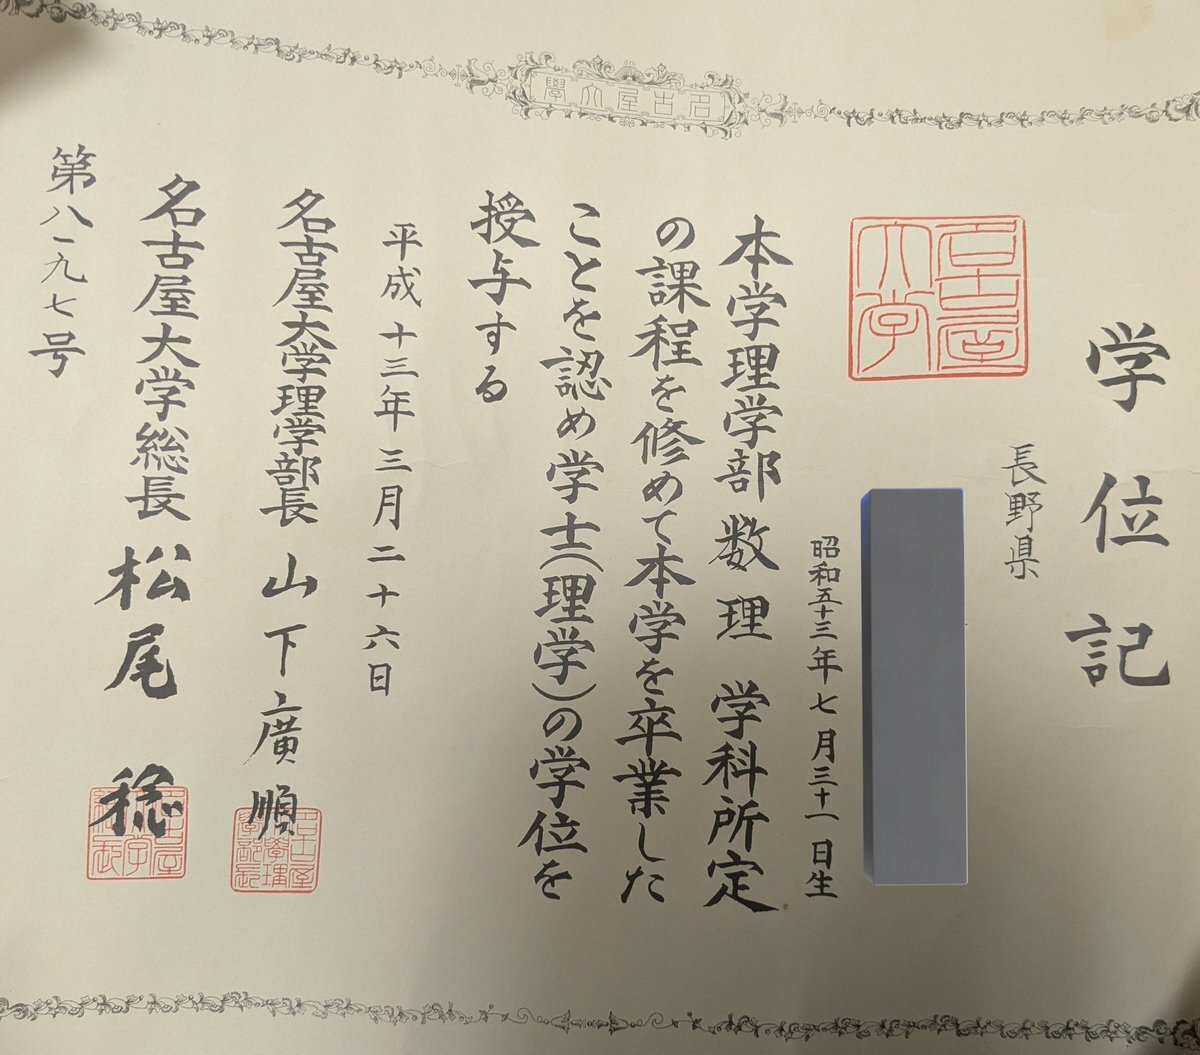 名古屋大学
学位記
名古屋大学
長野県
昭和五十三年七月三十一日生
本学理学部数理学科所定
の課程を修めて本学を卒業した
ことを認め学士(理学)の学位を
授与する
平成十三年三月二十六日
名古屋大学理学部長 山下廣順
名古屋大学総長 松尾稔
第八一九七号